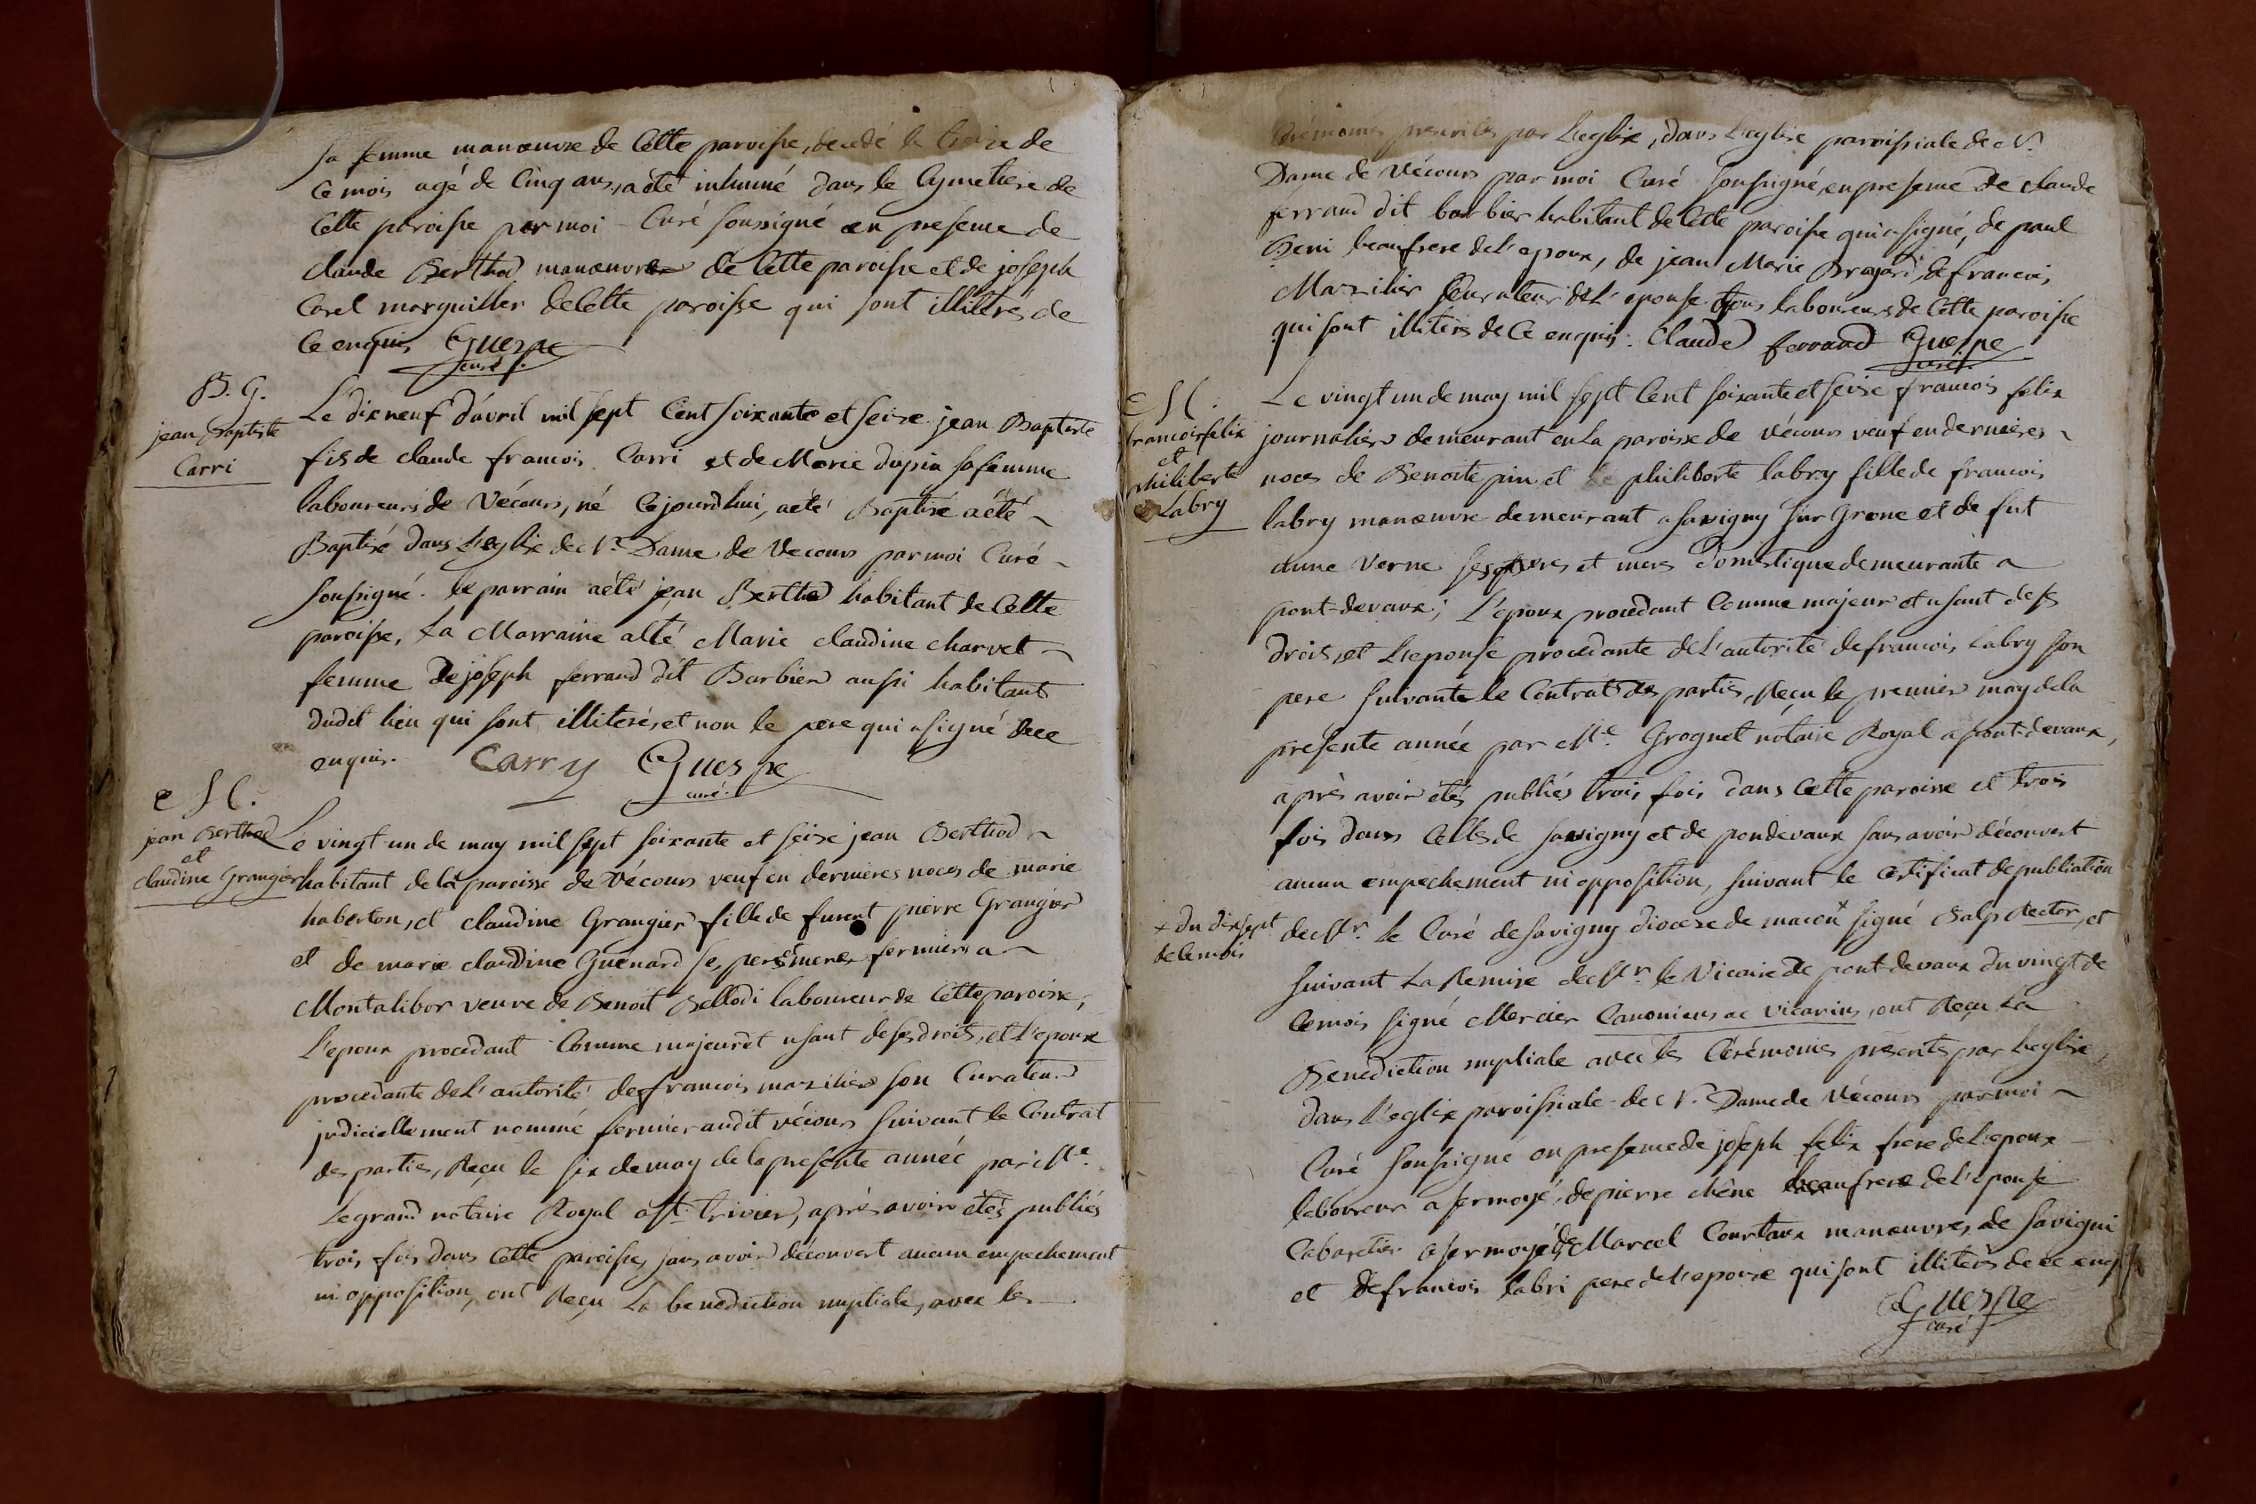 sa femme manœuvre de Cette paroisse, decedé le treize de
Ce mois agé de Cinq ans, a eté inhumé dans le Cymetiere de
Cette paroisse par moi Curé soussigné en presence de
claude Berthod manœuvre de Cette paroisse et de joseph
Carel marguillier de Cette paroisse qui sont illiterés de
Ce enquis Guespe
curé.
B. G.
jean Baptiste
Carri
Le dix neuf d'avril mil sept Cent soixante et seise jean Baptiste
fis de claude francois Carri et de Marie dupin sa femme
laboureurs de Vécours, né Cejourdhui, aeté Baptisé aeté
Baptisé dans L'eglise de N.e Dame de Vecours par moi Curé
sousigné. le parrain aeté jean Berthod habitant de Cette
paroisse, La Marraine aété Marie claudine Charvet
femme de joseph ferrand dit Barbier aussi habitant
dudit lieu qui sont illiterés, et non le pere qui a signé de ce
enquis. Carry Guespe
curé.
M.
jean Berthod
et
claudine Grangier
Le vingt-un de may mil sept soixante et seise jean Berthod
habitant de la paroisse de Vécours veuf en dernieres noces de marie
haberton, et claudine Grangier fille de furent pierre Grangier
et de marie claudine Guenard ses peres et meres fermiers a
Montalibor veuve de Benoit Bellodi laboureur de Cette paroisse,
L'epoux procedant Comme majeur et usant de ses droits, et L'epouse
procedante de L'autorité de francois mazilier son Curateur
judiciellement nommé fermier audit vécours suivant le Contrat
des parties, Reçu le six de may de la presente année par M.e
Legrand notaire Royal a St. trivier, après avoir étés publiés
trois fois dans Cette paroisse, sans avoir découvert aucun empechement
ni opposition, ont Reçu La benediction nuptiale, avec les
Cérémonies prescrites par L'eglise, dans L'eglise paroissiale de N.
Dame de Vécours par moi Curé soussigné, en presence de claude
ferrand dit barbier habitant de Cette paroisse qui a signé, de paul
Beni beaufrere de L'epoux, de jean Marie Brayard, de francois,
Mazilier Curateur de L'epouse tous laboureurs de Cette paroisse
qui sont illiterés de Ce enquis. Claude ferrand Guespe
curé.
M.
francois felix
et
philiberte
Labry
Le vingt un de may mil sept Cent soixante et seise francois felix
journalier demeurant en La paroisse de Vécours veuf en dernieres
noces de Benoite pin et philiberte labry fille de francois
labry manœuvre demeurant a savigny sur Grone et de fut
anne Verne ses peres et meres domestique demeurante a
pont-devaux; L'epoux procedant Comme majeur et usant de ses
droits, et L'epouse procedante de L'autorité de francois Labry son
pere suivante le Contrat des parties, Reçu le premier may de la
presente année par M.e Grognet notaire Royal a pont-devaux,
après avoir étés publiés trois fois dans Cette paroisse et trois
fois dans Celles de savigny et de pondevaux sans avoir découvert
aucun empechement ni opposition, suivant le Certificat de publication
+ du dix sept
de Ce mois
de Mr. le Curé de savigny diocese de macon + signé Rector, et
suivant La Remise de Mr. le Vicaire de pont-devaux du vingt de
Ce mois signé Mercier Canonicus ac vicarius, ont Reçu La
Benediction nuptiale avec les Cérémonies prescrites par L'eglise
dans L'eglise paroissiale de N. Dame de Vécours par moi
Curé soussigné en presence de joseph felix frere de L'epoux
laboureur a sermoyé, de pierre chêne beaufrere de L'epouse
Cabaretier a sermoyé, de Marcel Courtaux manœuvres, de savigni
et de francois labri pere de L'epouse qui sont illiterés de ce enq
Guespe
curé